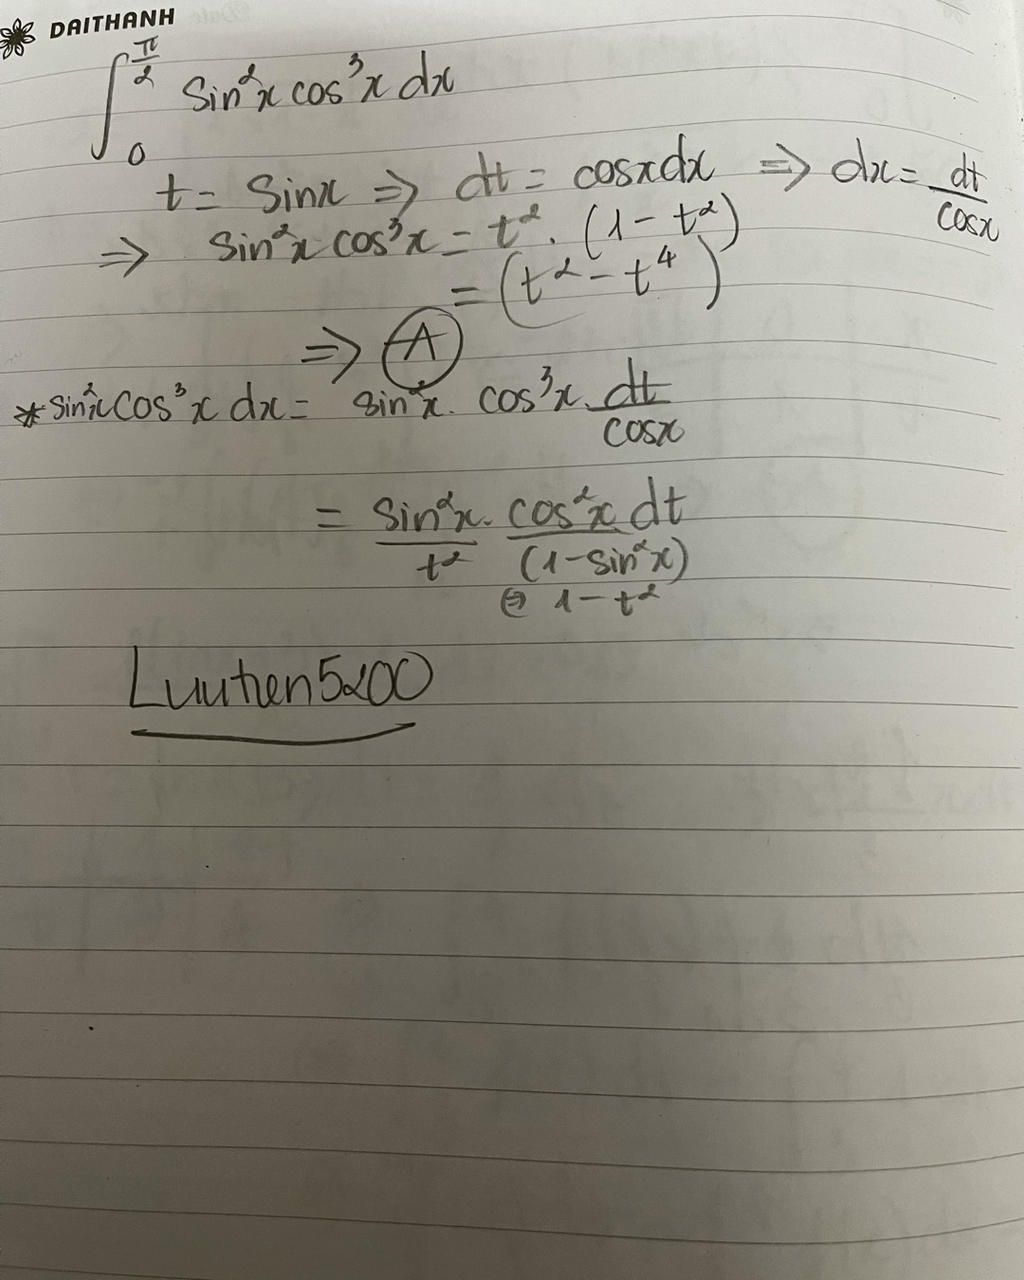 DAITHANH
∫₀^(π/2) sin²x cos³x dx
t = sinx ⇒ dt = cosxdx ⇒ dx = dt/cosx
⇒ sin²x cos³x = t². (1 - t²)
= (t² - t⁴)
⇒ A
* sin²x cos³x dx = sin²x. cos³x. dt/cosx
= sin²x. cos²x dt
t² (1-sin²x)
⇔ 1 - t²
Luutien5200